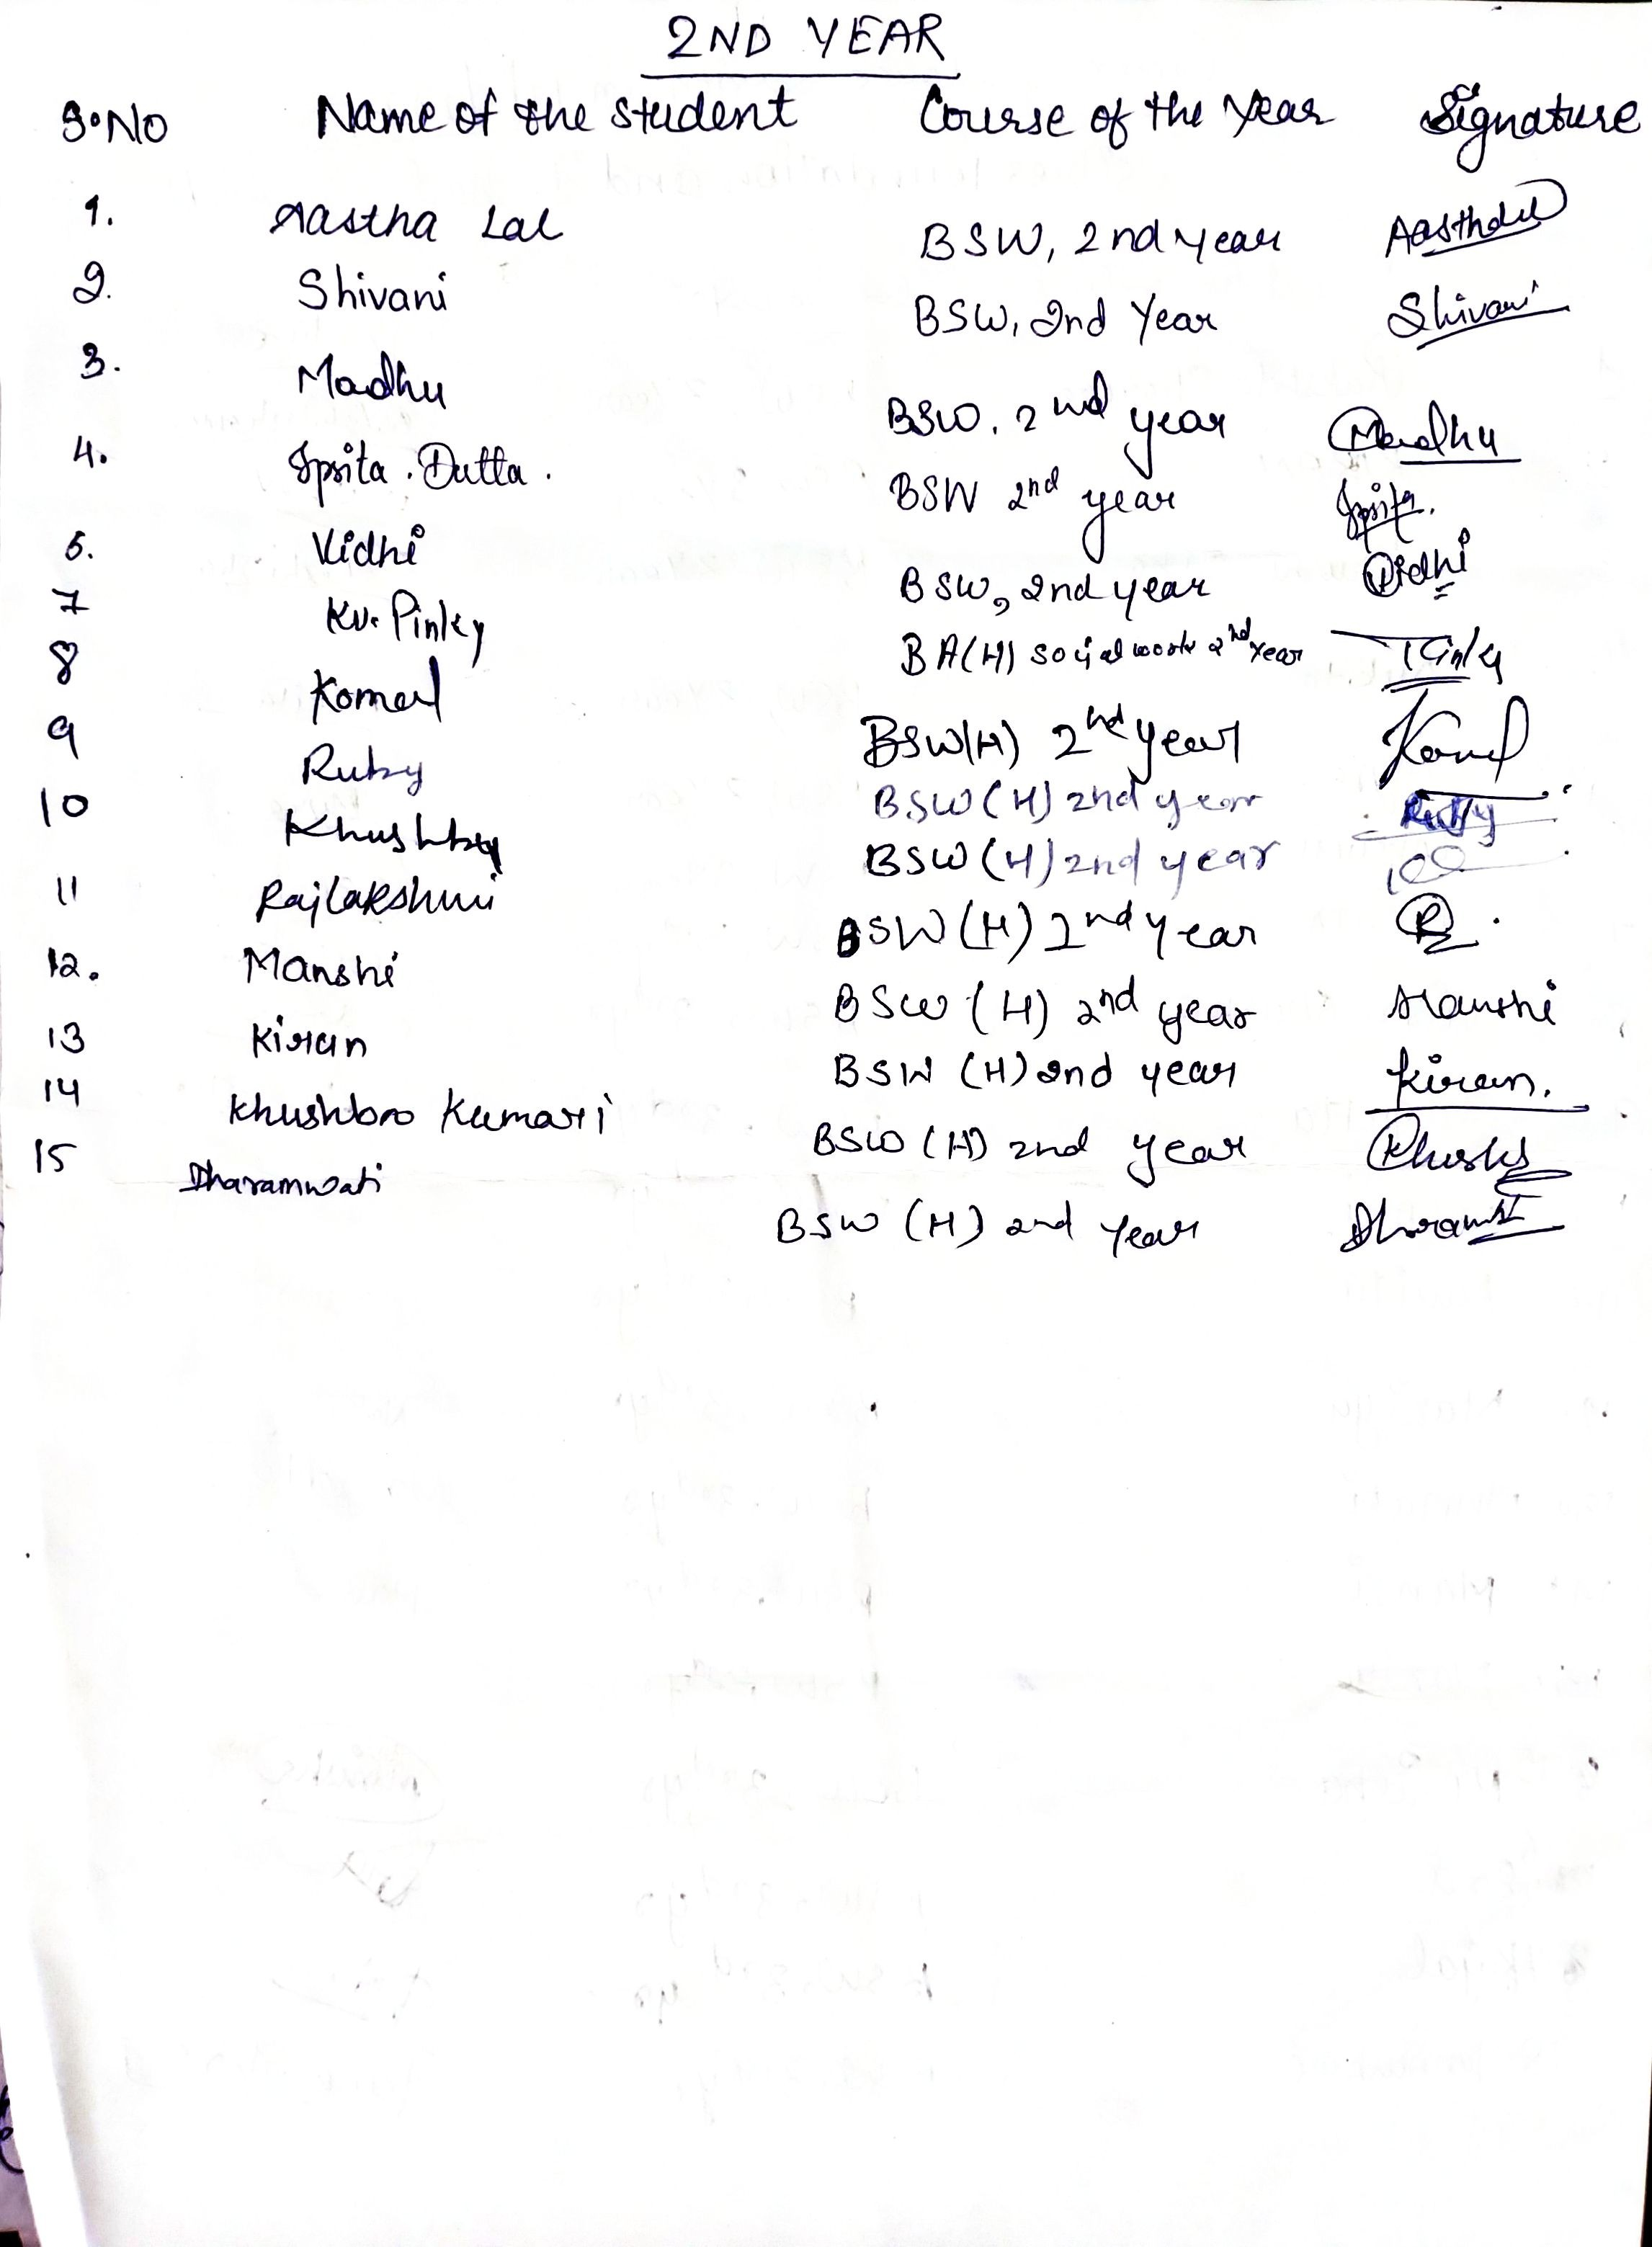 2ND YEAR
S.No Name of the student Course of the Year Signature
1. Aastha Lal BSW, 2nd year Aasthalal
2. Shivani BSW, 2nd Year Shivani
3. Madhu BSW, 2nd year Madhu
4. Ipsita . Dutta . BSW 2nd year Ipsita.
5. Vidhi BSW, 2nd year Vidhi
7 Ku. Pinky BA(H) social work 2nd year Pinky
8 Komal BSW(H) 2nd year Komal
9 Ruby BSW (H) 2nd year Ruby
10 Khushboo BSW (H) 2nd year
11 Rajlakshmi BSW (H) 2nd year R
12. Manshi BSW (H) 2nd year Manshi
13 Kiran BSW (H) 2nd year Kiran.
14 Khushboo Kumari BSW (H) 2nd year
15 Dharamwati BSW (H) 2nd year